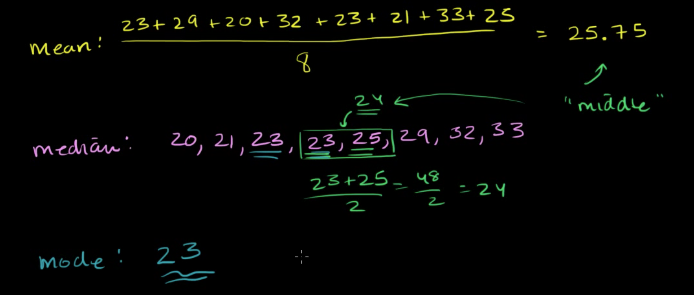 mean: 23+29+20+32+23+21+33+25 / 8 = 25.75
"middle"
24
median: 20, 21, 23, 23, 25, 29, 32, 33
23+25 / 2 = 48 / 2 = 24
mode: 23